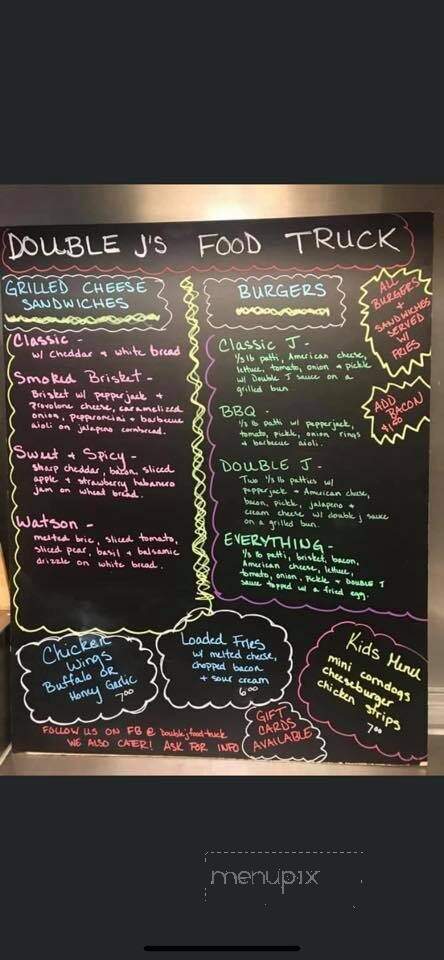 DOUBLE J'S FOOD TRUCK
GRILLED CHEESE
SANDWICHES
Classic -
w/ cheddar & white bread
Smoked Brisket -
Brisket w/ pepperjack &
provolone cheese, caramelized
onion, pepperoncini & barbecue
aioli on jalapeno cornbread.
Sweet & Spicy -
sharp cheddar, bacon, sliced
apple & strawberry habanero
jam on wheat bread.
Watson -
melted brie, sliced tomato,
sliced pear, basil & balsamic
drizzle on white bread.
BURGERS
Classic J -
1/3 lb patti, American cheese,
lettuce, tomato, onion & pickle
w/ Double J sauce on a
grilled bun
BBQ -
1/3 lb patti w/ pepperjack,
tomato, pickle, onion rings
& barbecue aioli.
DOUBLE J -
Two 1/3 lb patties w/
pepperjack & American cheese,
bacon, pickle, jalapeno &
cream cheese w/ double j sauce
on a grilled bun.
EVERYTHING -
1/3 lb patti, brisket, bacon,
American cheese, lettuce,
tomato, onion, pickle & Double J
sauce topped w/ a fried egg.
ALL
BURGERS
&
SANDWICHES
SERVED
W/
FRIES
ADD
BACON
Chicken
Wings
Buffalo OR
Honey Garlic
7.00
Loaded Fries
w/ melted cheese,
chopped bacon
& sour cream
6.00
Kids Menu
mini corndogs
cheeseburger
chicken strips
7.00
FOLLOW US ON FB @ doublejfoodtruck
WE ALSO CATER! ASK FOR INFO
GIFT
CARDS
AVAILABLE
menupix